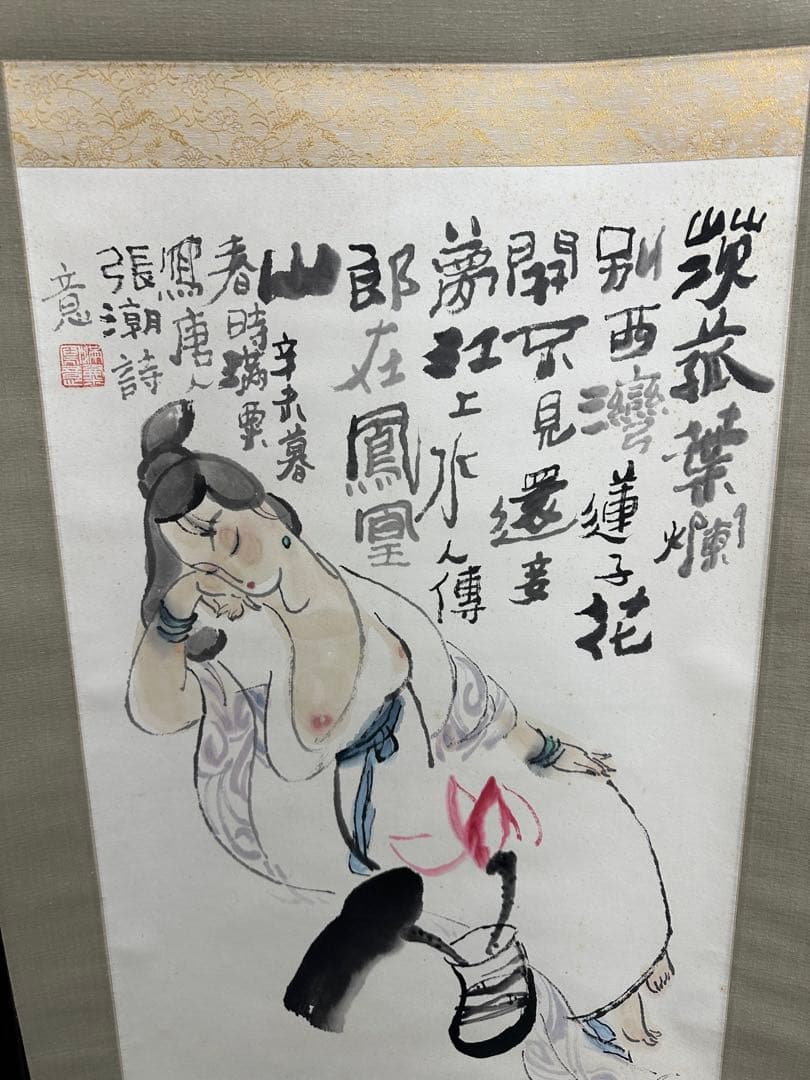 茨菰葉爛
別西灣蓮子花
開不見還妾
夢江上水人傳
郎在鳳凰
山
辛未暮
春時滿
寫唐人
張潮詩
意